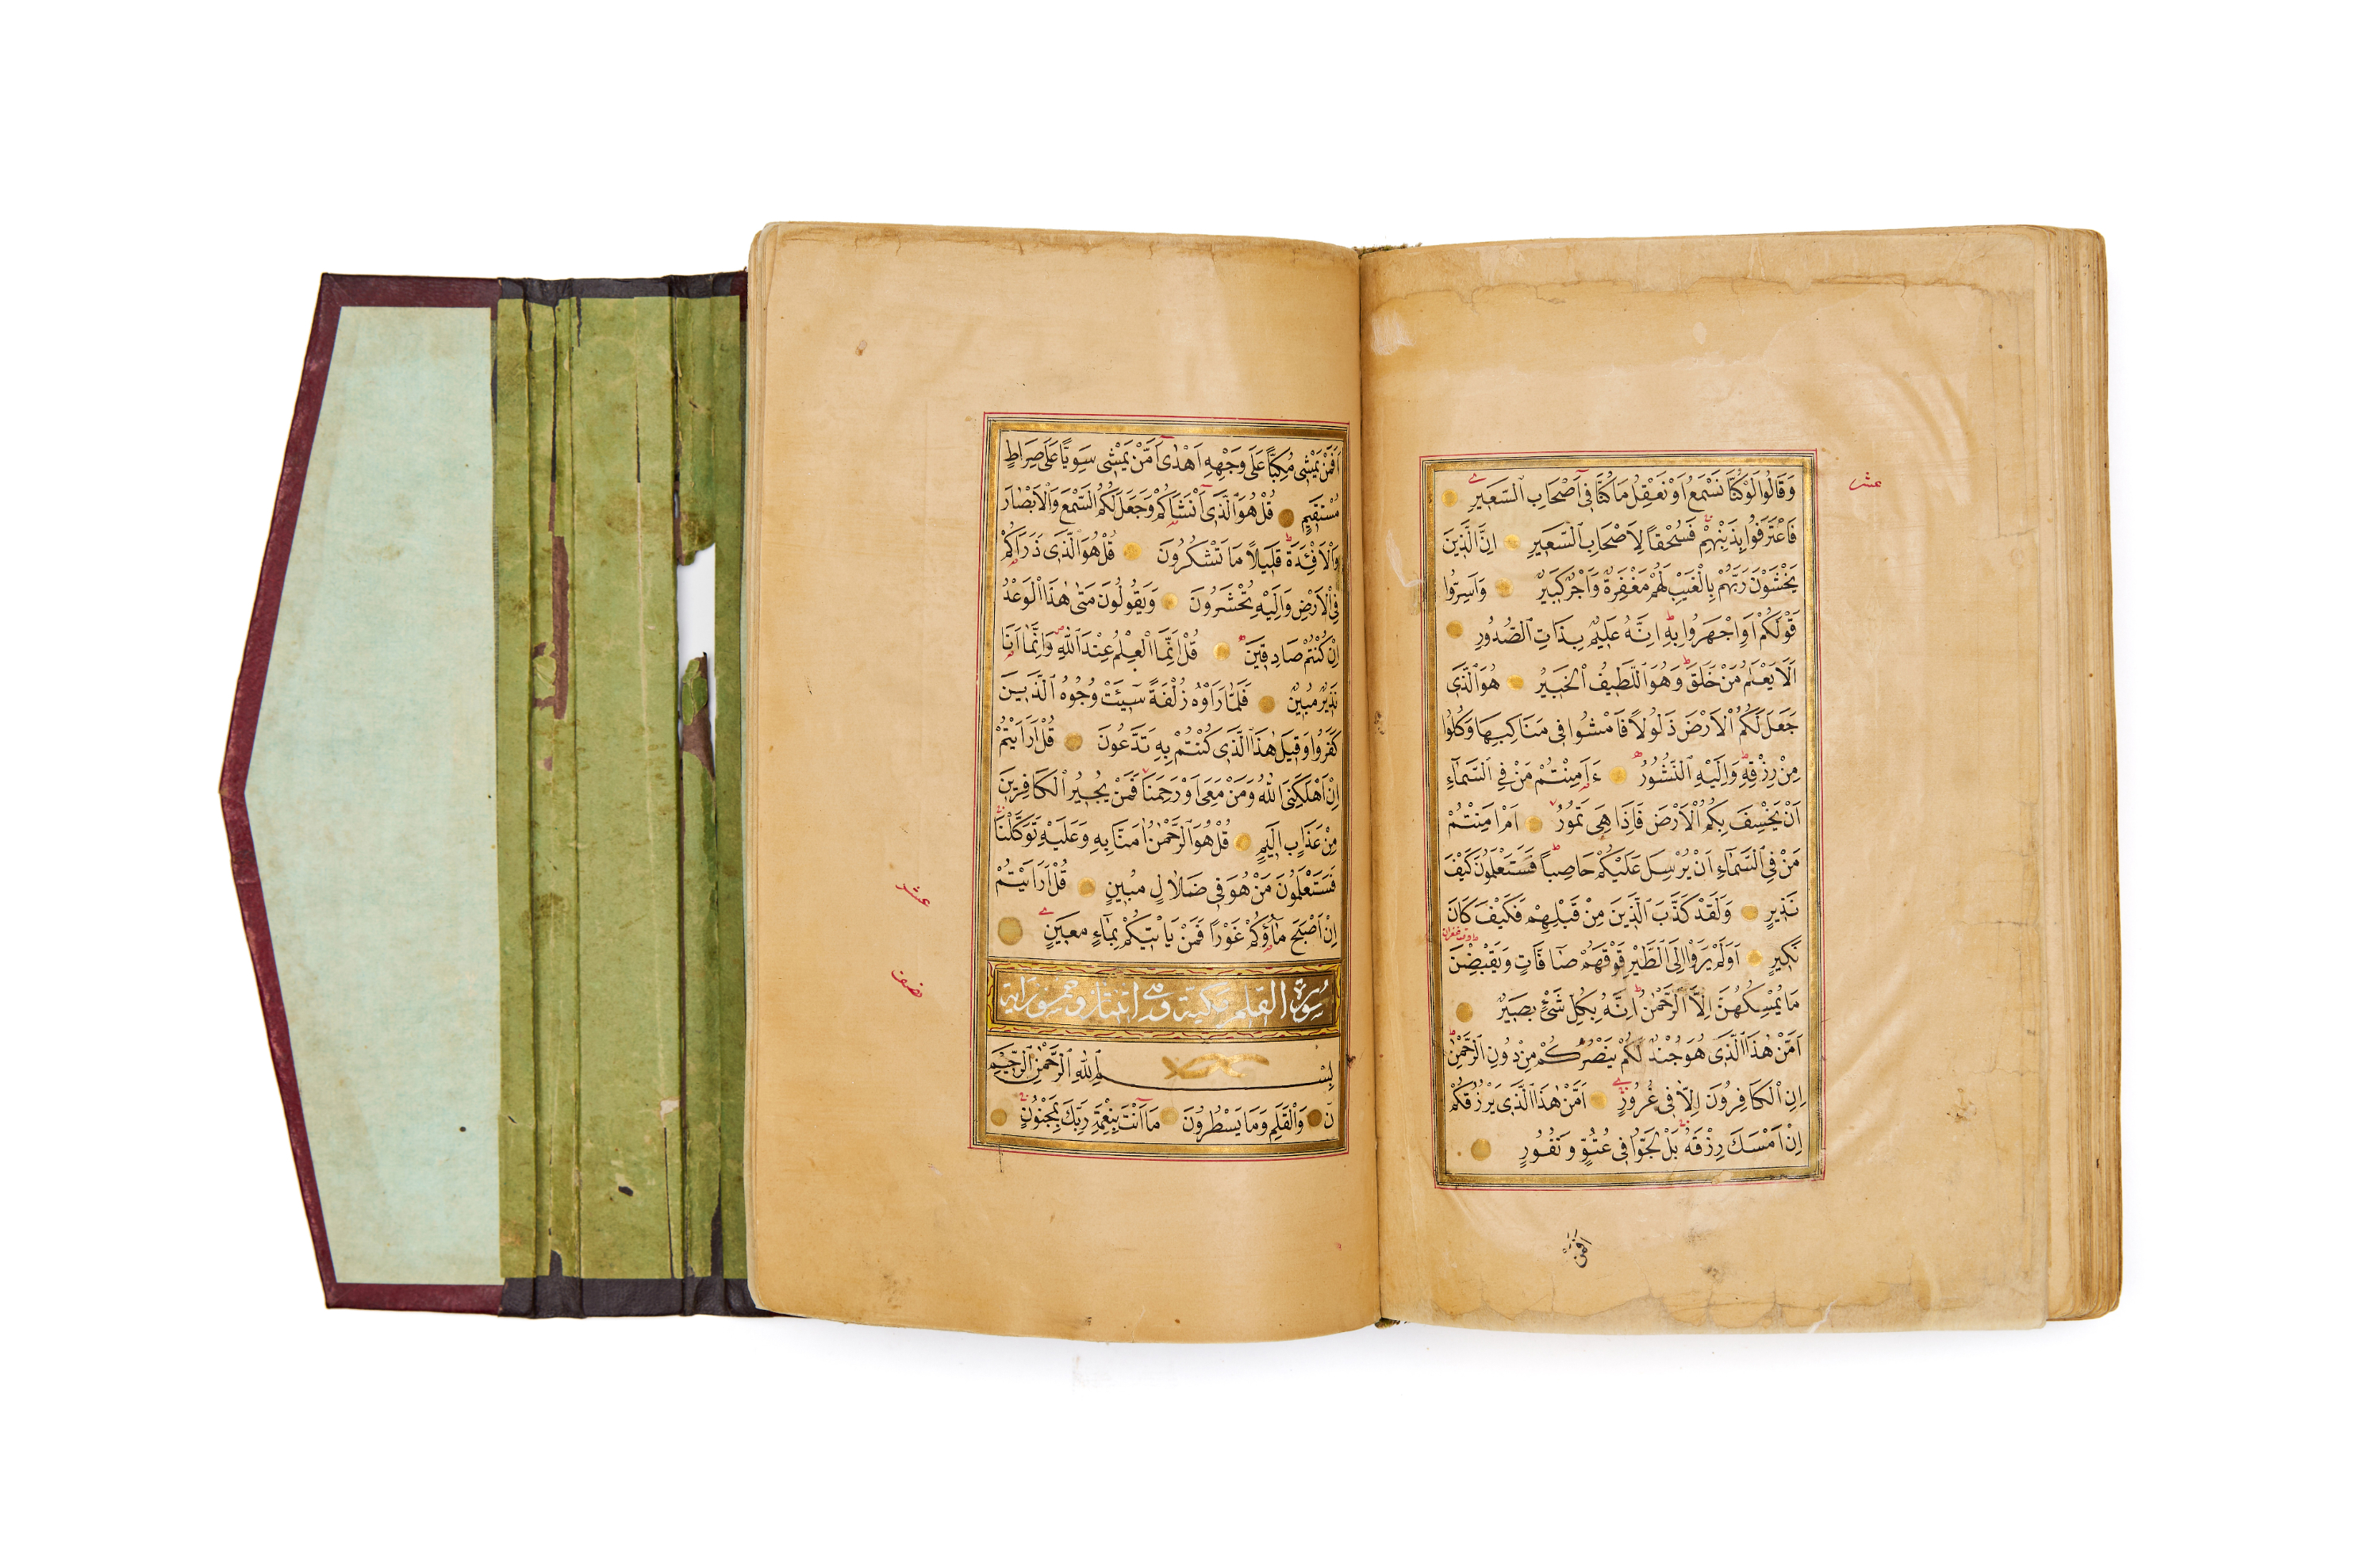 وَقَالُوا لَوْ كُنَّا نَسْمَعُ اَوْ نَعْقِلُ مَا كُنَّا فِى اَصْحَابِ السَّعِيرِ
عشر
فَاعْتَرَفُوا بِذَنْبِهِمْ فَسُحْقاً لِاَصْحَابِ السَّعِيرِ اِنَّ الَّذِينَ
يَخْشَوْنَ رَبَّهُمْ بِالْغَيْبِ لَهُمْ مَغْفِرَةٌ وَاَجْرٌ كَبِيرٌ وَاَسِرُّوا
قَوْلَكُمْ اَوِ اجْهَرُوا بِهِ اِنَّهُ عَلِيمٌ بِذَاتِ الصُّدُورِ
اَلَا يَعْلَمُ مَنْ خَلَقَ وَهُوَ اللَّطِيفُ الْخَبِيرُ هُوَ الَّذِى
جَعَلَ لَكُمُ الْاَرْضَ ذَلُولاً فَامْشُوا فِى مَنَاكِبِهَا وَكُلُوا
مِنْ رِزْقِهِ وَاِلَيْهِ النُّشُورُ ءَاَمِنْتُمْ مَنْ فِى السَّمَاءِ
اَنْ يَخْسِفَ بِكُمُ الْاَرْضَ فَاِذَا هِىَ تَمُورُ اَمْ اَمِنْتُمْ
مَنْ فِى السَّمَاءِ اَنْ يُرْسِلَ عَلَيْكُمْ حَاصِباً فَسَتَعْلَمُونَ كَيْفَ
نَذِيرِ وَلَقَدْ كَذَّبَ الَّذِينَ مِنْ قَبْلِهِمْ فَكَيْفَ كَانَ
نَكِيرِ اَوَلَمْ يَرَوْا اِلَى الطَّيْرِ فَوْقَهُمْ صَافَّاتٍ وَيَقْبِضْنَ
مَا يُمْسِكُهُنَّ اِلَّا الرَّحْمٰنُ اِنَّهُ بِكُلِّ شَىْءٍ بَصِيرٌ
اَمَّنْ هٰذَا الَّذِى هُوَ جُنْدٌ لَكُمْ يَنْصُرُكُمْ مِنْ دُونِ الرَّحْمٰنِ
اِنِ الْكَافِرُونَ اِلَّا فِى غُرُورٍ اَمَّنْ هٰذَا الَّذِى يَرْزُقُكُمْ
اِنْ اَمْسَكَ رِزْقَهُ بَلْ لَجُّوا فِى عُتُوٍّ وَنُفُورٍ
اَفَمَنْ
اَفَمَنْ يَمْشِى مُكِبًّا عَلَى وَجْهِهِ اَهْدٰى اَمَّنْ يَمْشِى سَوِيًّا عَلَى صِرَاطٍ
مُسْتَقِيمٍ قُلْ هُوَ الَّذِى اَنْشَاَكُمْ وَجَعَلَ لَكُمُ السَّمْعَ وَالْاَبْصَارَ
وَالْاَفْئِدَةَ قَلِيلاً مَا تَشْكُرُونَ قُلْ هُوَ الَّذِى ذَرَاَكُمْ
فِى الْاَرْضِ وَاِلَيْهِ تُحْشَرُونَ وَيَقُولُونَ مَتٰى هٰذَا الْوَعْدُ
اِنْ كُنْتُمْ صَادِقِينَ قُلْ اِنَّمَا الْعِلْمُ عِنْدَ اللّٰهِ وَاِنَّمَا اَنَا
نَذِيرٌ مُبِينٌ فَلَمَّا رَاَوْهُ زُلْفَةً سِيٓئَتْ وُجُوهُ الَّذِينَ
كَفَرُوا وَقِيلَ هٰذَا الَّذِى كُنْتُمْ بِهِ تَدَّعُونَ قُلْ اَرَاَيْتُمْ
اِنْ اَهْلَكَنِىَ اللّٰهُ وَمَنْ مَعِىَ اَوْ رَحِمَنَا فَمَنْ يُجِيرُ الْكَافِرِينَ
مِنْ عَذَابٍ اَلِيمٍ قُلْ هُوَ الرَّحْمٰنُ اٰمَنَّا بِهِ وَعَلَيْهِ تَوَكَّلْنَا
فَسَتَعْلَمُونَ مَنْ هُوَ فِى ضَلَالٍ مُبِينٍ قُلْ اَرَاَيْتُمْ
عشر
اِنْ اَصْبَحَ مَاؤُكُمْ غَوْرًا فَمَنْ يَاْتِيكُمْ بِمَاءٍ مَعِينٍ
نصف
سورة القلم مكية وهى اثنتان وخمسون اية
بِسْمِ اللّٰهِ الرَّحْمٰنِ الرَّحِيمِ
نٓ وَالْقَلَمِ وَمَا يَسْطُرُونَ مَا اَنْتَ بِنِعْمَةِ رَبِّكَ بِمَجْنُونٍ